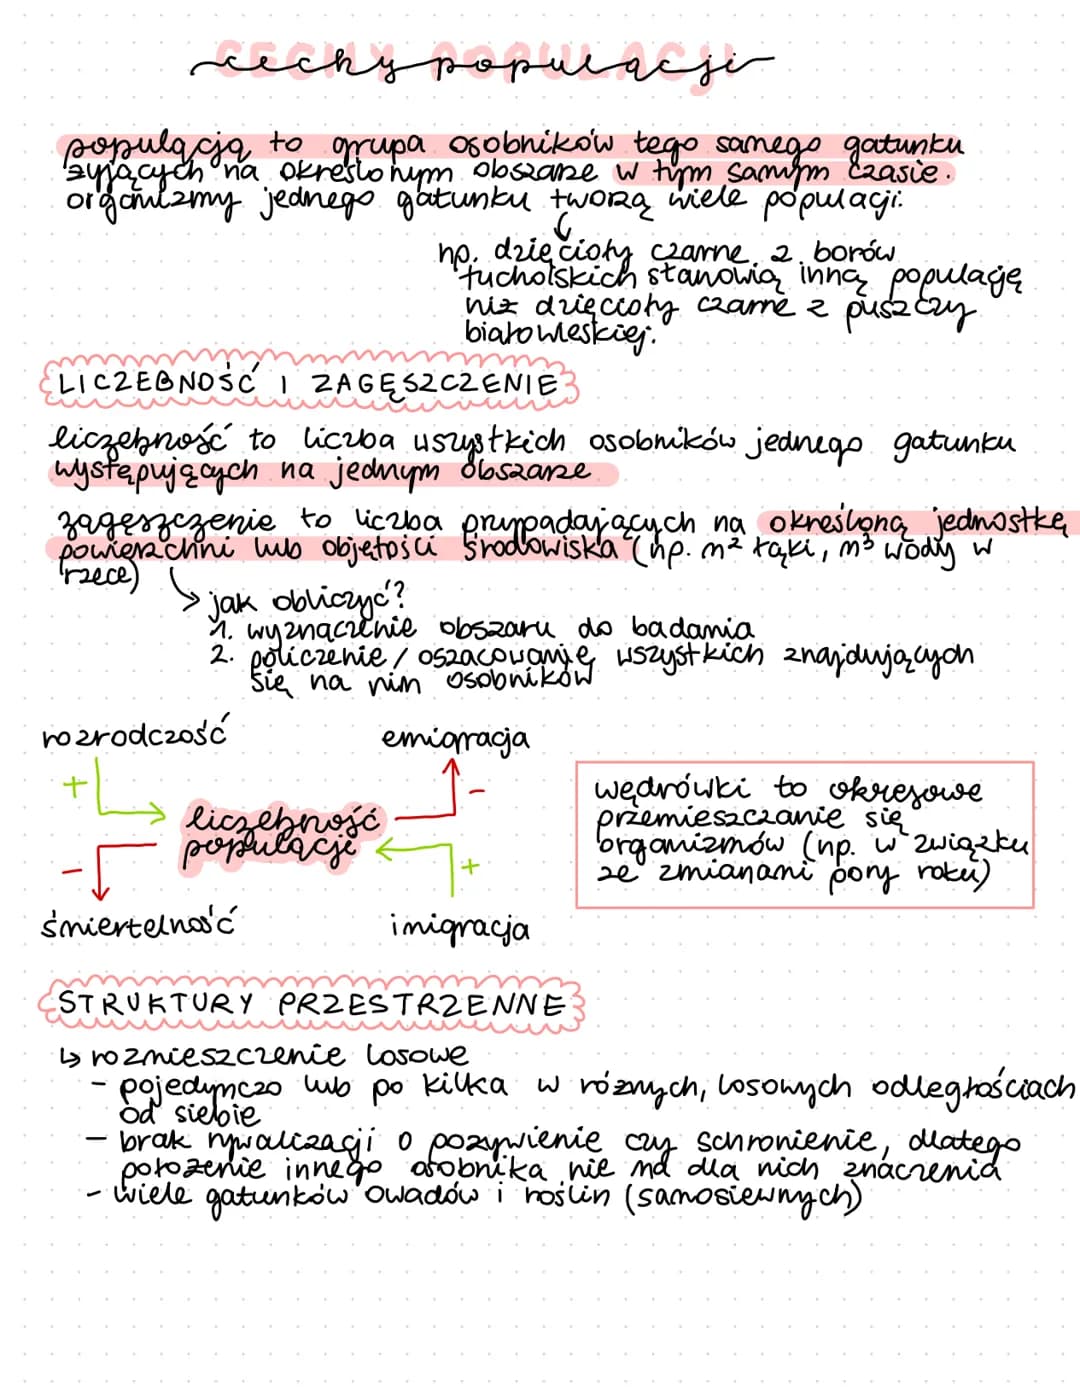 CECHY POPULACJI
cechy populacji
populacja to grupa osobników tego samego gatunku
żyjących na określonym obszarze w tym samym czasie.
organizmy jednego gatunku tworzą wiele populacji.
np. dzięcioły czarne z borów
tucholskich stanowią inną populację
niż dzięcioły czarne z puszczy
białowieskiej.
LICZEBNOŚĆ I ZAGĘSZCZENIE
liczebność to liczba wszystkich osobników jednego gatunku
występujących na jednym obszarze
zagęszczenie to liczba przypadających na określoną jednostkę
powierzchni lub objętości środowiska (np. m² łąki, m³ wody w
rzece)
jak obliczyć?
1. wyznaczenie obszaru do badania
2. policzenie / oszacowanie wszystkich znajdujących
się na nim osobników
rozrodczość emigracja
+ -
liczebność
populacji
- +
śmiertelność imigracja
wędrówki to okresowe
przemieszczanie się
organizmów (np. w związku
ze zmianami pory roku)
STRUKTURY PRZESTRZENNE
↳ rozmieszczenie losowe
- pojedynczo lub po kilka w różnych, losowych odległościach
od siebie
- brak rywalizacji o pożywienie czy schronienie, dlatego
położenie innego osobnika nie ma dla nich znaczenia
- wiele gatunków owadów i roślin (samosiewnych)